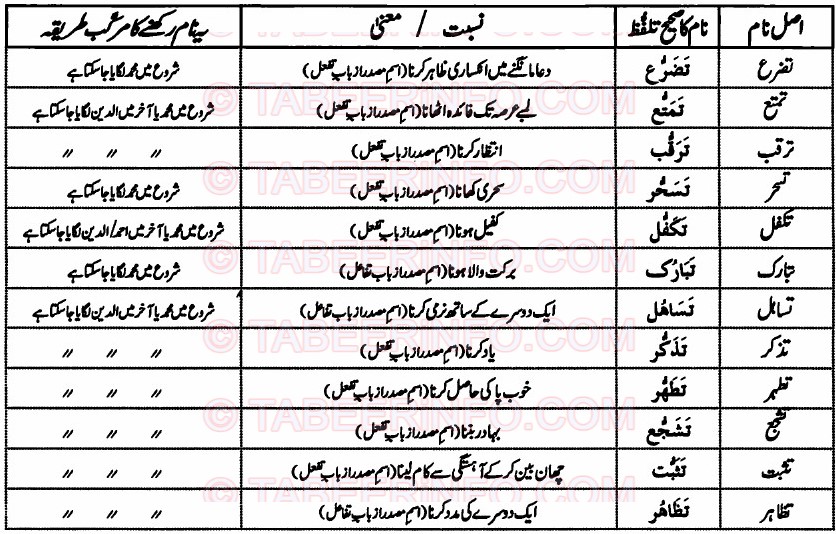 اصل نام | نام کا صحیح تلفّظ | نسبت / معنیٰ | یہ نام رکھنے کا مرکّب طریقہ
تضرع | تَضَرُّع | دعا مانگنے میں انکساری ظاہر کرنا (اسمِ مصدر از باب تفعل) | شروع میں محمد لگایا جا سکتا ہے
تمتع | تَمَتُّع | لمبے عرصہ تک فائدہ اٹھانا (اسمِ مصدر از باب تفعل) | شروع میں محمد یا آخر میں الدین لگایا جا سکتا ہے
ترقب | تَرَقُّب | انتظار کرنا (اسمِ مصدر از باب تفعل) | // // //
تسحر | تَسَحُّر | سحری کھانا (اسمِ مصدر از باب تفعل) | شروع میں محمد لگایا جا سکتا ہے
تکفل | تَکَفُّل | کفیل ہونا (اسمِ مصدر از باب تفعل) | شروع میں محمد یا آخر میں احمد/الدین لگایا جا سکتا ہے
تبارک | تَبَارُک | برکت والا ہونا (اسمِ مصدر از باب تفاعل) | شروع میں محمد لگایا جا سکتا ہے
تساہل | تَسَاهُل | ایک دوسرے کے ساتھ نرمی کرنا (اسمِ مصدر از باب تفاعل) | شروع میں محمد یا آخر میں الدین لگایا جا سکتا ہے
تذکر | تَذَکُّر | یاد کرنا (اسمِ مصدر از باب تفعل) | // // //
تطہر | تَطَهُّر | خوب پاکی حاصل کرنا (اسمِ مصدر از باب تفعل) | // // //
تشجع | تَشَجُّع | بہادر بننا (اسمِ مصدر از باب تفعل) | // // //
تثبت | تَثَبُّت | چھان بین کر کے آہستگی سے کام لینا (اسمِ مصدر از باب تفعل) | // // //
تظاہر | تَظَاهُر | ایک دوسرے کی مدد کرنا (اسمِ مصدر از باب تفاعل) | // // //
© TABEERINFO.COM
© TABEERINFO.COM
© TABEERINFO.COM
© TABEERINFO.COM
© TABEERINFO.COM
© TABEERINFO.COM